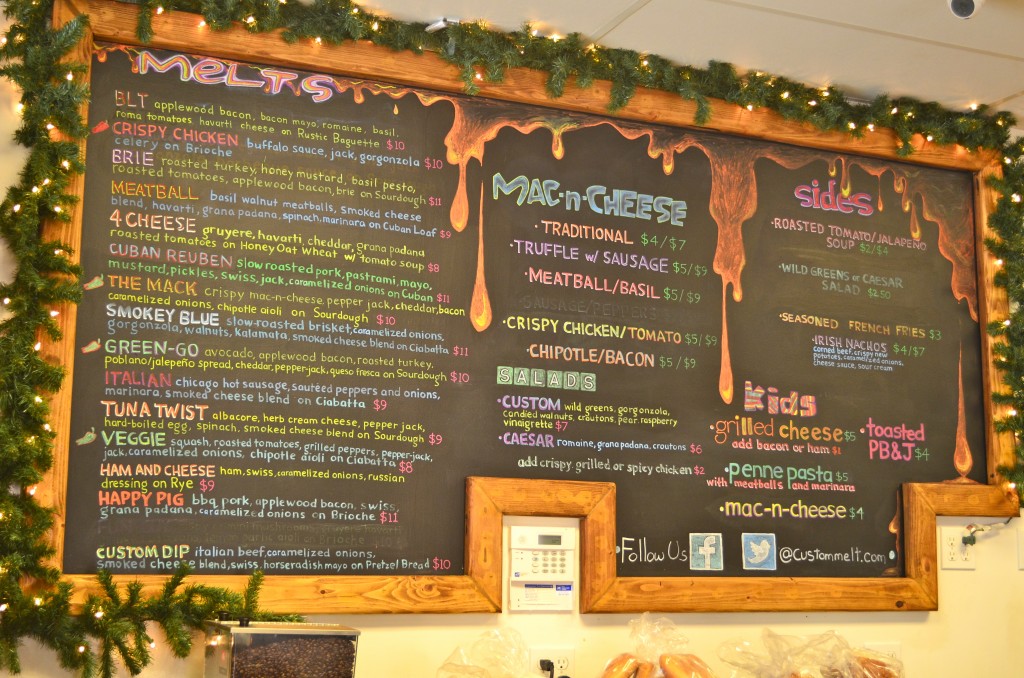 MELTS
BLT applewood bacon, bacon mayo, romaine, basil,
roma tomatoes, havarti cheese on Rustic Baguette $10
CRISPY CHICKEN buffalo sauce, jack, gorgonzola
celery on Brioche $10
BRIE roasted turkey, honey mustard, basil pesto,
roasted tomatoes, applewood bacon, brie on Sourdough $11
MEATBALL basil walnut meatballs, smoked cheese
blend, havarti, grana padana, spinach, marinara on Cuban Loaf $9
4 CHEESE gruyere, havarti, cheddar, grana padana
roasted tomatoes on Honey Oat Wheat w/ tomato soup $8
CUBAN REUBEN slow roasted pork, pastrami, mayo,
mustard, pickles, swiss, jack, caramelized onions on Cuban $11
THE MACK crispy mac-n-cheese, pepper jack, cheddar, bacon
caramelized onions, chipotle aioli on Sourdough $10
SMOKEY BLUE slow-roasted brisket, caramelized onions,
gorgonzola, walnuts, kalamata, smoked cheese blend on Ciabatta $11
GREEN-GO avocado, applewood bacon, roasted turkey,
poblano/jalapeño spread, cheddar, pepper-jack, queso fresca on Sourdough $10
ITALIAN chicago hot sausage, sautéed peppers and onions,
marinara, smoked cheese blend on Ciabatta $9
TUNA TWIST albacore, herb cream cheese, pepper jack,
hard-boiled egg, spinach, smoked cheese blend on Sourdough $9
VEGGIE squash, roasted tomatoes, grilled peppers, pepper-jack,
jack, caramelized onions, chipotle aioli on Ciabatta $8
HAM AND CHEESE ham, swiss, caramelized onions, russian
dressing on Rye $9
HAPPY PIG bbq pork, applewood bacon, swiss,
grana padana, caramelized onions on Brioche $11
CUSTOM DIP italian beef, caramelized onions,
smoked cheese blend, swiss, horseradish mayo on Pretzel Bread $10
MAC-n-CHEESE
•TRADITIONAL $4/$7
•TRUFFLE w/ SAUSAGE $5/$9
•MEATBALL/BASIL $5/$9
SAUSAGE/PEPPERS
•CRISPY CHICKEN/TOMATO $5/$9
•CHIPOTLE/BACON $5/$9
SALADS
•CUSTOM wild greens, gorgonzola,
candied walnuts, croutons, pear, raspberry
vinaigrette $7
•CAESAR romaine, grana padana, croutons $6
add crispy, grilled or spicy chicken $2
sides
•ROASTED TOMATO/JALAPEÑO
SOUP $2/$4
•WILD GREENS or CAESAR
SALAD $2.50
•SEASONED FRENCH FRIES $3
•IRISH NACHOS $4/$7
corned beef, crispy new
potatoes, caramelized onions,
cheese sauce, sour cream
kids
•grilled cheese $5
add bacon or ham $1
•toasted
PB&J $4
•penne pasta $5
with meatballs and marinara
•mac-n-cheese $4
•Follow Us f @custommelt.com